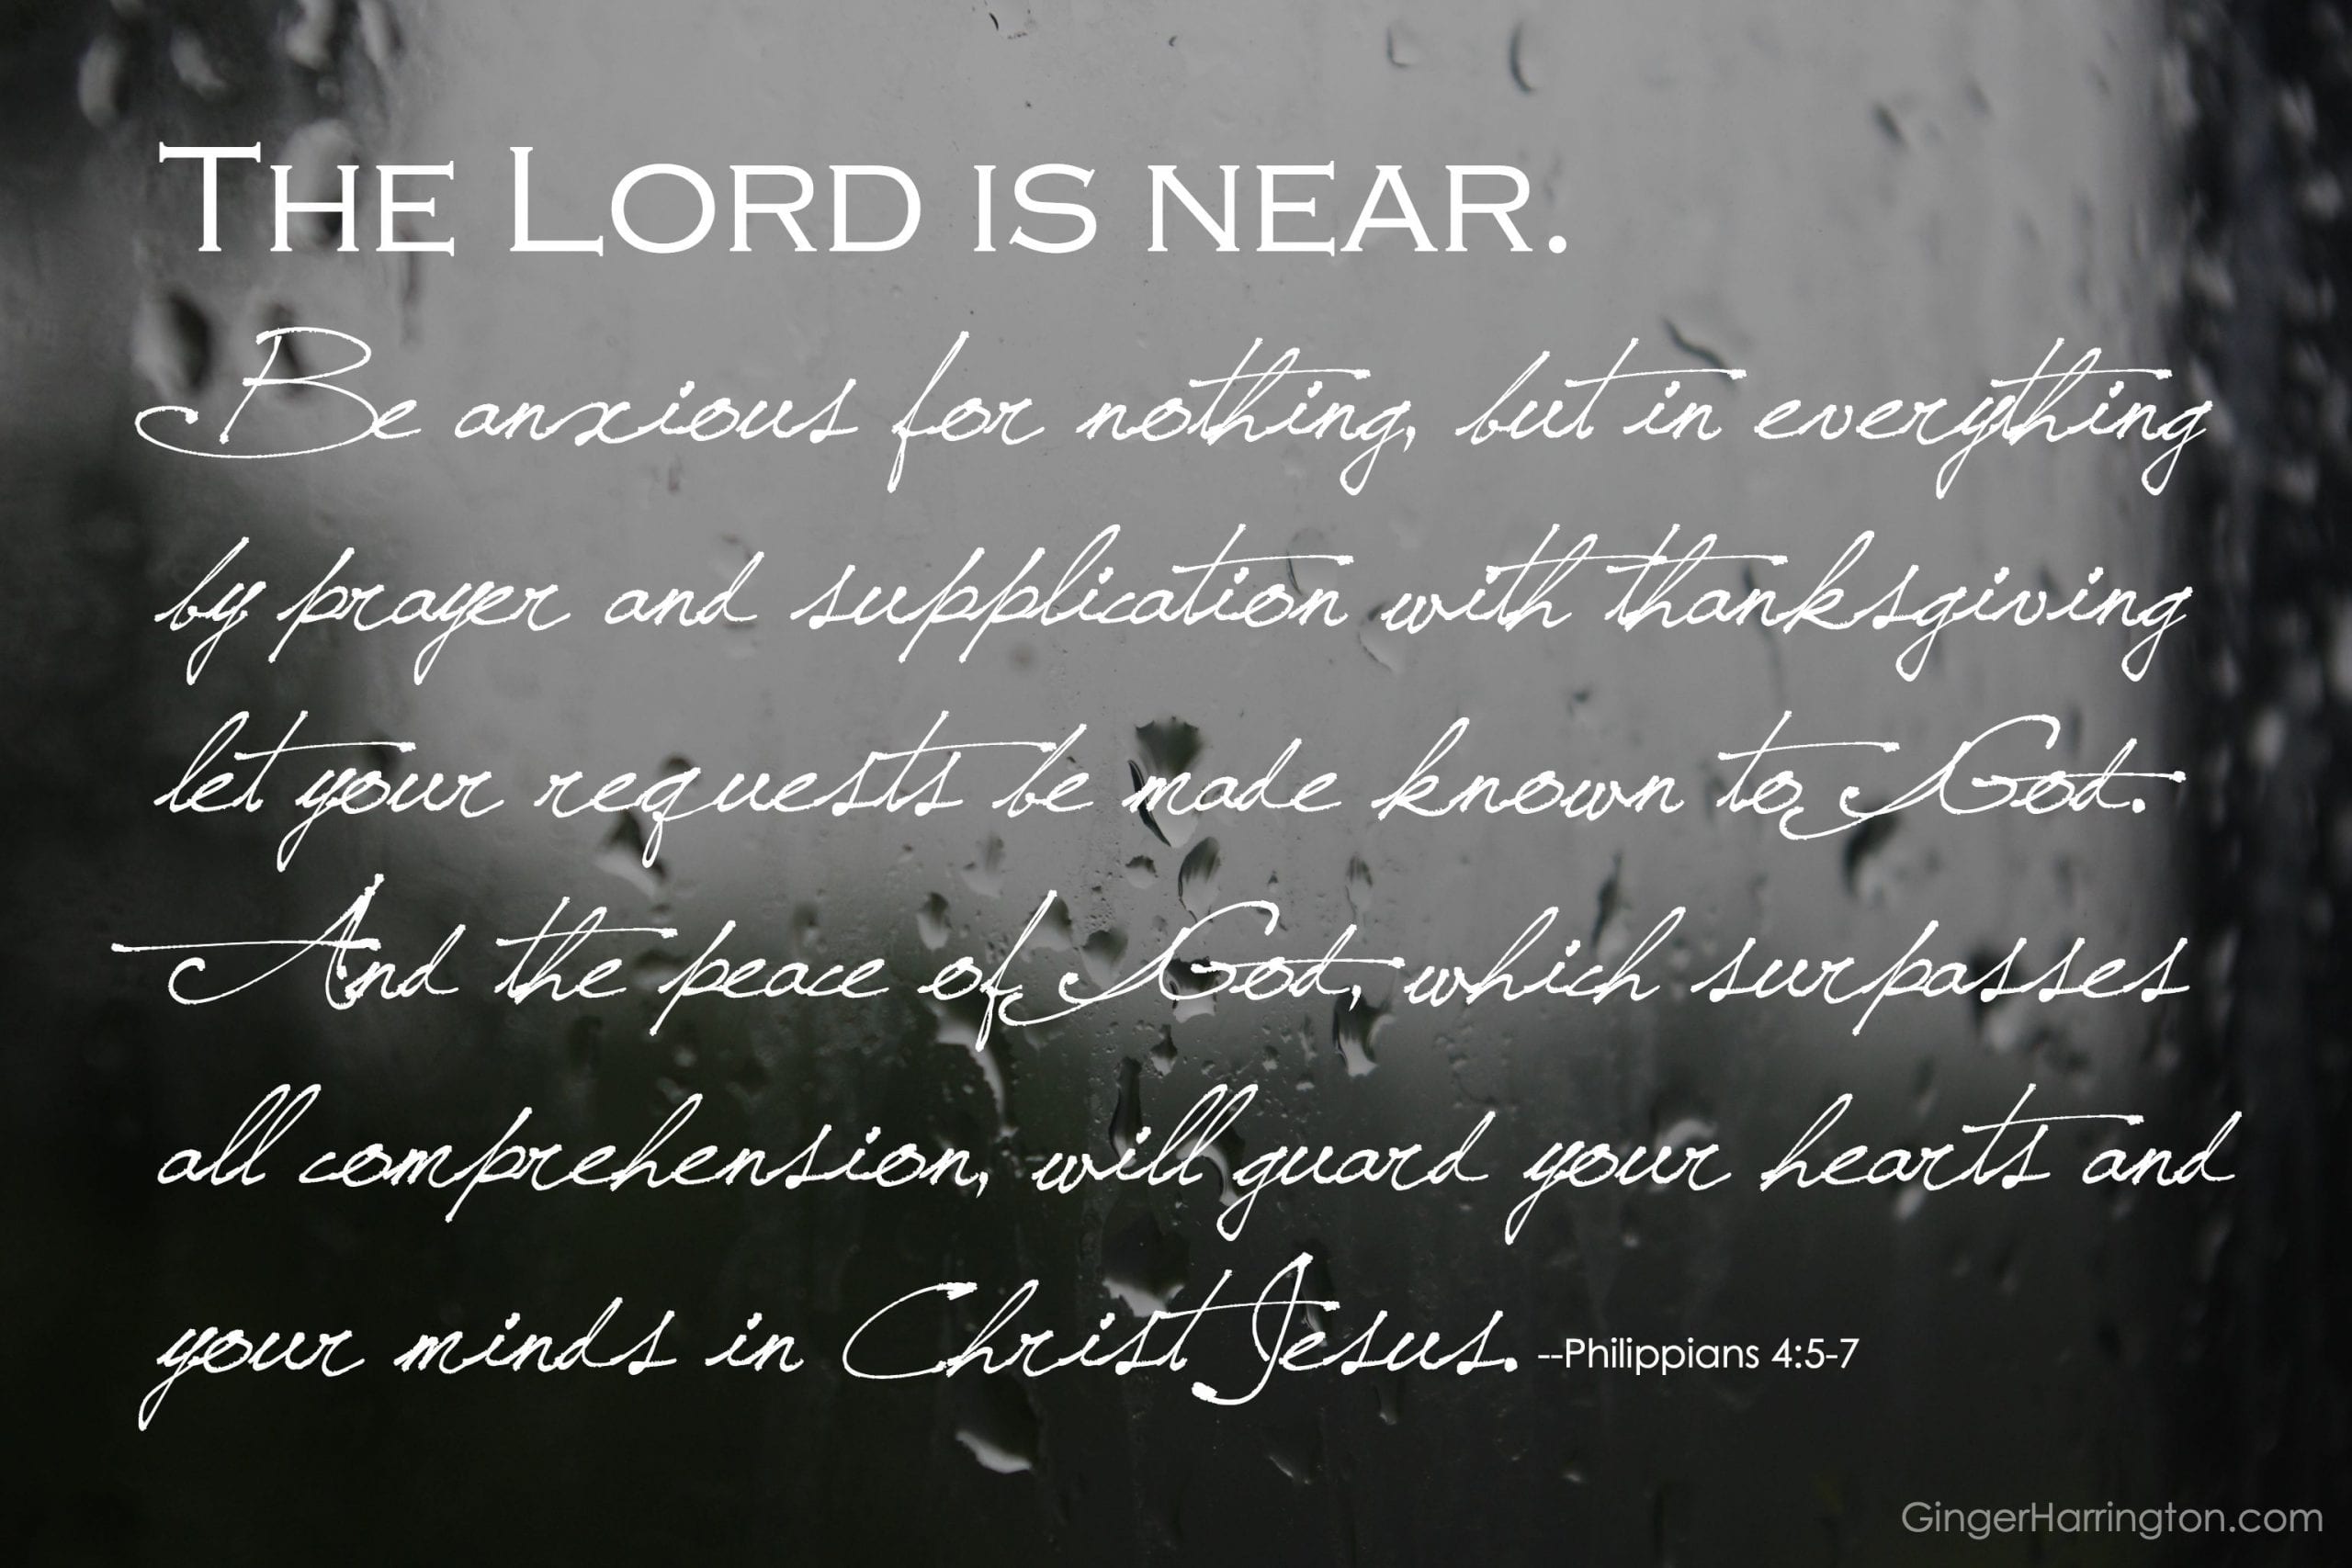 The Lord is near.
Be anxious for nothing, but in everything
by prayer and supplication with thanksgiving
let your requests be made known to God.
And the peace of God, which surpasses
all comprehension, will guard your hearts and
your minds in Christ Jesus. --Philippians 4:5-7
GingerHarrington.com